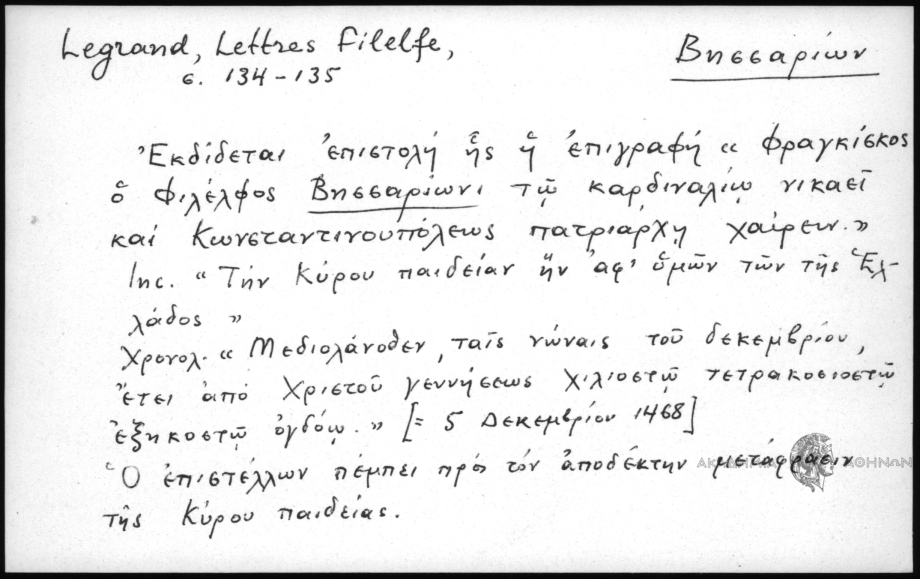 Legrand, Lettres Filelfe,
σ. 134-135
Βησσαρίων
Ἐκδίδεται ἐπιστολή ἧς ἡ ἐπιγραφή « Φραγκίσκος
ὁ Φιλέλφος Βησσαρίωνι τῷ καρδιναλίῳ νικαεῖ
καί Κωνσταντινουπόλεως πατριάρχῃ χαίρειν.»
Inc. « Τήν Κύρου παιδείαν ἥν ἀφ' ὑμῶν τῶν τῆς Ἑλ-
λάδος »
Χρονολ. « Μεδιολάνοθεν, ταῖς νώναις τοῦ δεκεμβρίου,
ἔτει ἀπό Χριστοῦ γεννήσεως χιλιοστῷ τετρακοσιοστῷ
ἑξηκοστῷ ὀγδόῳ.» [= 5 Δεκεμβρίου 1468]
Ὁ ἐπιστέλλων πέμπει πρός τόν ἀποδέκτην μετάφρασιν
τῆς Κύρου παιδείας.
ΑΚΑΔΗΜΙΑ ΑΘΗΝΩΝ